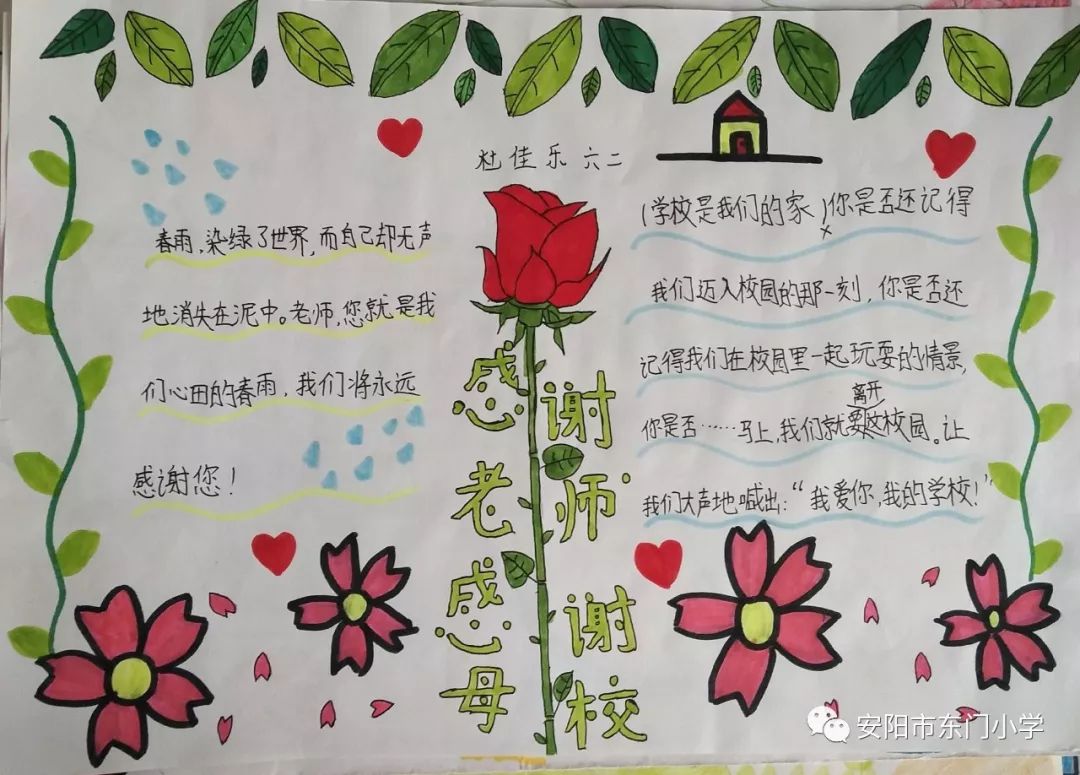 杜佳乐 六二
春雨，染绿了世界，而自己却无声
地消失在泥中。老师，您就是我
们心田的春雨，我们将永远
感谢您！
感谢
老师
感谢
母校
(学校是我们的家)你是否还记得
我们迈入校园的那一刻，你是否还
记得我们在校园里一起玩耍的情景，
离开
你是否……马上，我们就要这校园。让
我们大声地喊出：“我爱你，我的学校！”
安阳市东门小学